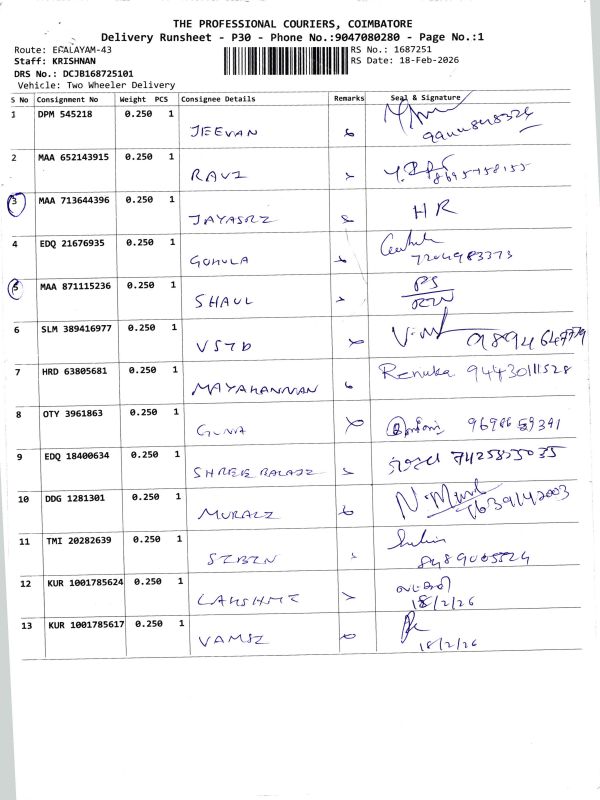 THE PROFESSIONAL COURIERS, COIMBATORE
Delivery Runsheet - P30 - Phone No.:9047080280 - Page No.:1
Route: EPALAYAM-43 RS No.: 1687251
Staff: KRISHNAN RS Date: 18-Feb-2026
DRS No.: DCJB168725101
Vehicle: Two Wheeler Delivery
S No Consignment No Weight PCS Consignee Details Remarks Seal & Signature
1 DPM 545218 0.250 1 JEEVAN
2 MAA 652143915 0.250 1 RAVI
3 MAA 713644396 0.250 1 JAYASRI HR
4 EDQ 21676935 0.250 1 GOKULA 7204983373
5 MAA 871115236 0.250 1 SHAUL PS
6 SLM 389416977 0.250 1 VSTD
7 HRD 63805681 0.250 1 MAYAKANNAN Renuka 9443011528
8 OTY 3961863 0.250 1 GUNA
9 EDQ 18400634 0.250 1 SHREE BALAJI
10 DDG 1281301 0.250 1 MURALI
11 TMI 20282639 0.250 1 SIBIN
12 KUR 1001785624 0.250 1 LAKSHMI
18/2/26
13 KUR 1001785617 0.250 1 VAMSI
18/2/26